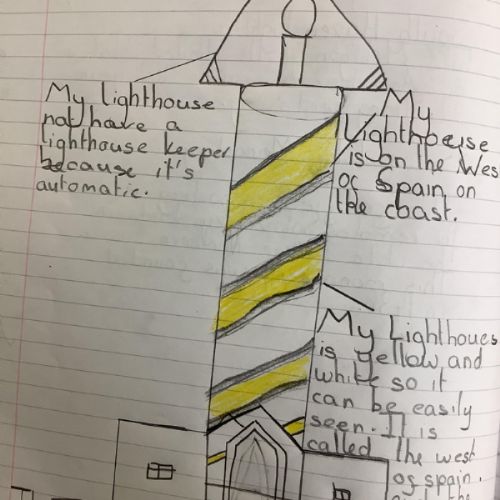 My Lighthouse
not have a
lighthouse keeper
because it's
automatic.
My
Lighthoeuse
is on the Wes
of Spain on
the coast.
My Lighthoues
is yellow and
white so it
can be easily
seen. It is
called the west
of spain.
the